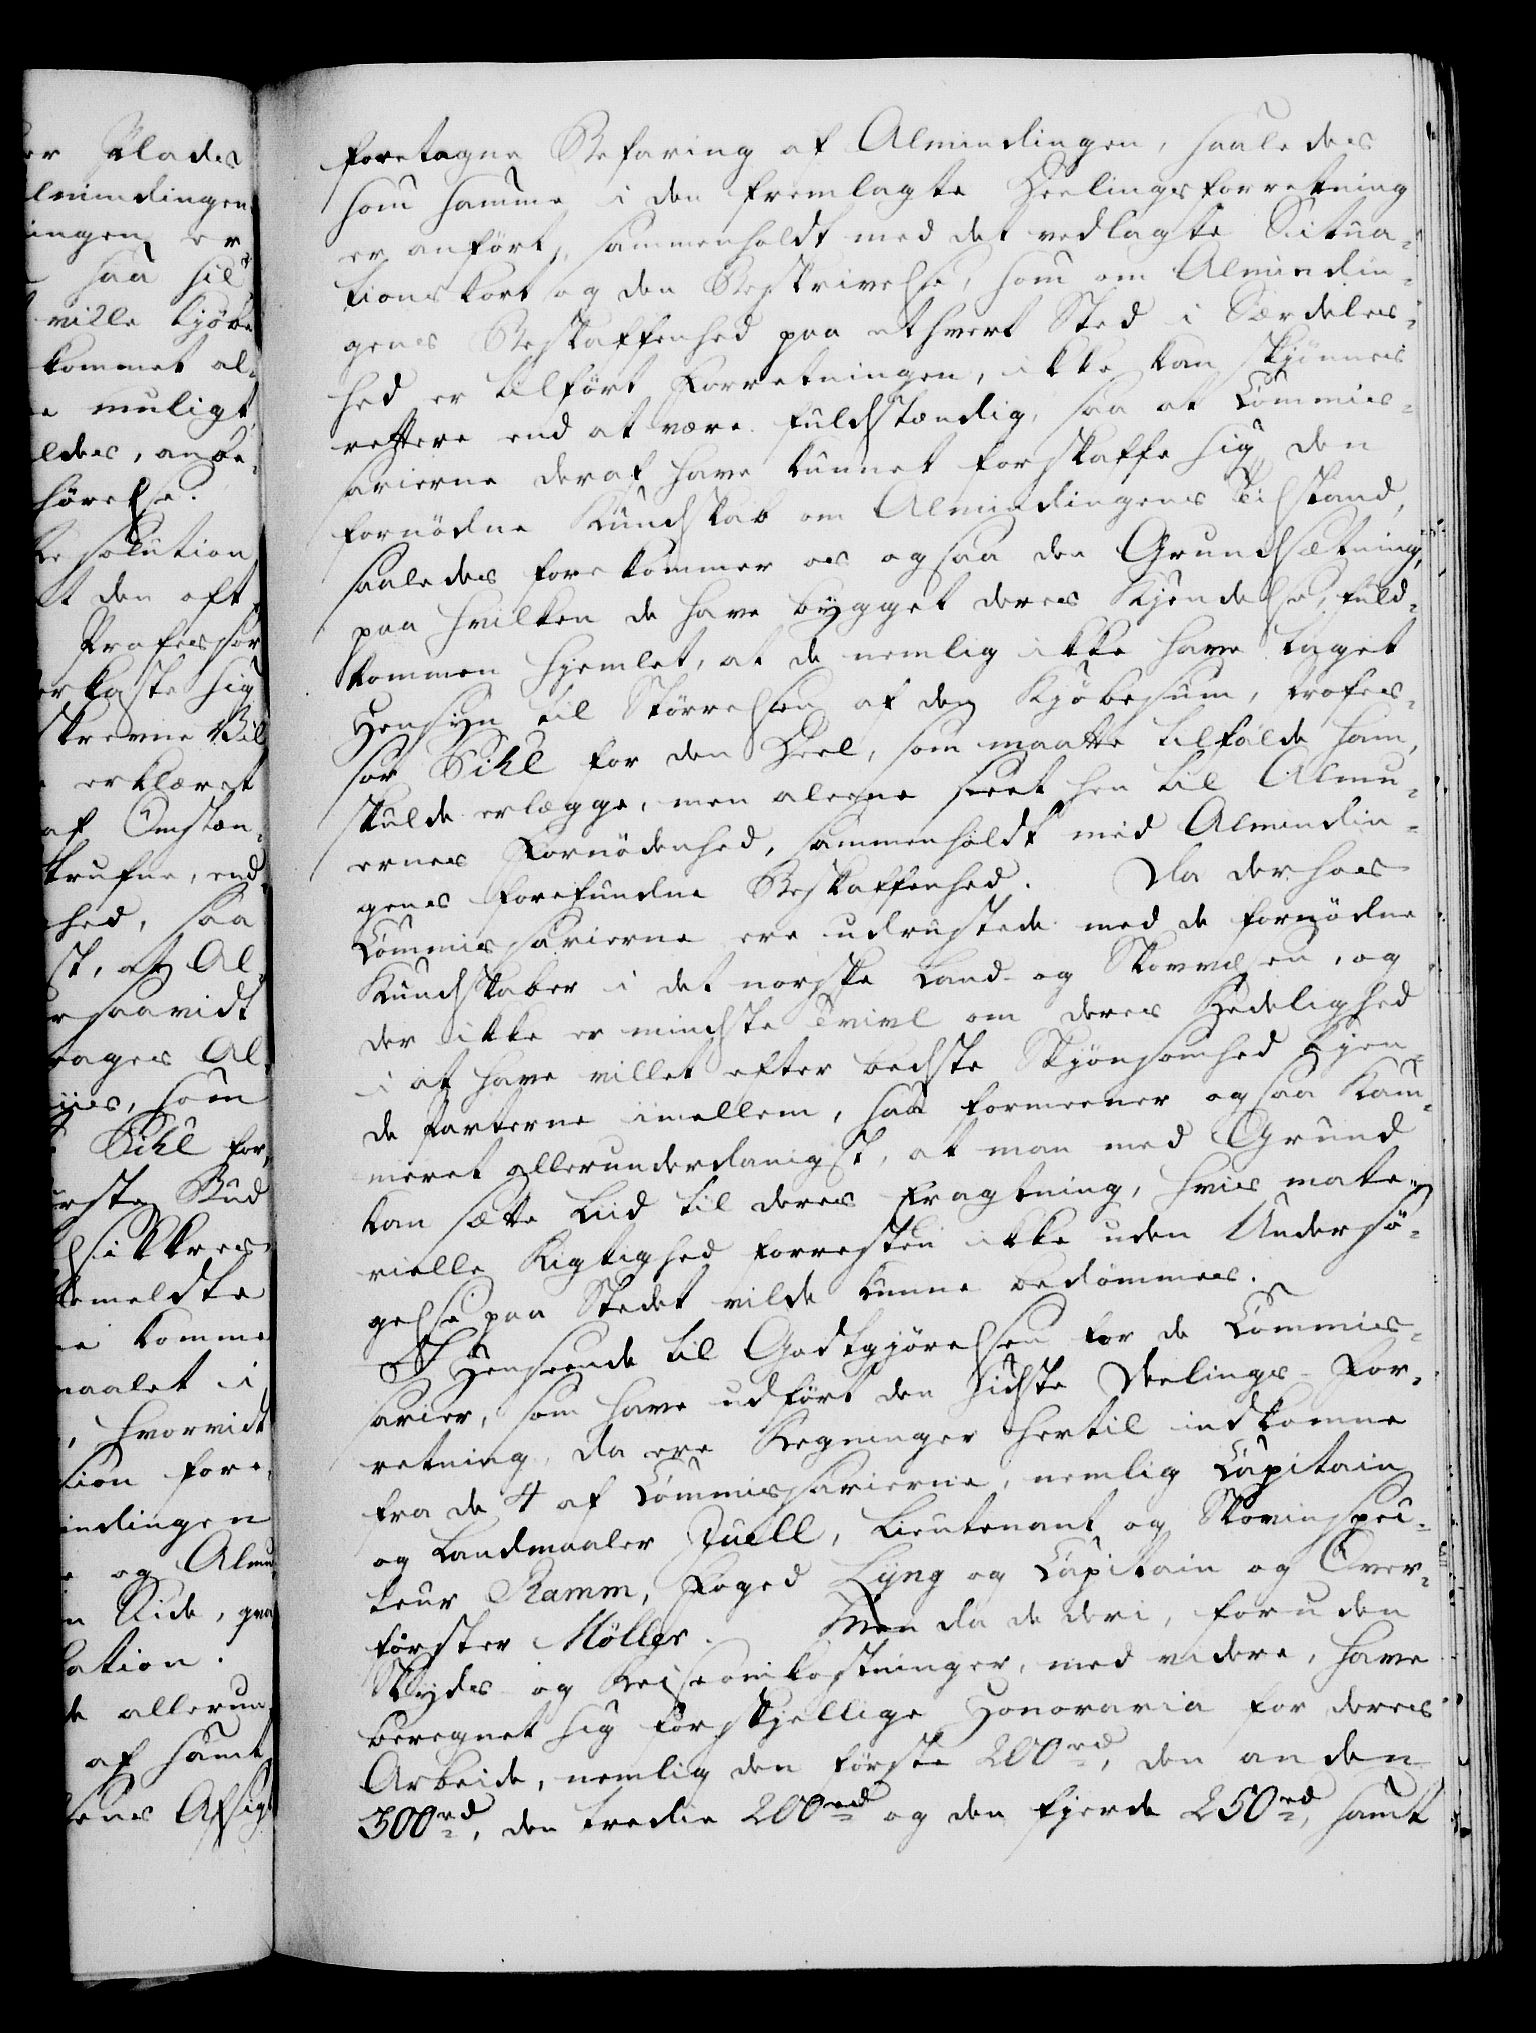 er Klades
lmindingen
ingen er
saa sil
ville kjöbe
kommet al-
muligt
ldes, anbe-
hörelse.
Resolution
t den oft
Professor
erkaste sig
skrevne Vil
erklæret
af Omstæn-
trufne, end
hed, saa
st, at Al-
r saavidt
rages Al
iis, som
Pihl for
rste Bud
sikkres
temeldte
komme
maalet i
, hvorvidt
tion fore-
indingen
og Almu
n Side, gra
lation.
de allerun-
af samt
tens Afsigt
foretagne Befaring af Almindingen, saaledes
som samme i den fremlagte Deelingsforretning
er anfört, sammenholdt med det vedlagte Situa-
tionskort og den Beskrivelse, som om Almindin-
gens Beskaffenhed paa ethvert Sted i Særdeles-
hed er tilfört Forretningen, ikke kan skjönnes
rettere end at være fuldstændig, saa at Commis-
sarierne deraf have kunnet forskaffe sig den
fornödne Kundskab om Almindingens Tilstand,
saaledes forekommer os ogsaa den Grundsætning,
paa hvilken de have bygget deres Kjendelse, fuld-
kommen hjemlet, at de nemlig ikke have taget
Hensyn til Störrelsen af den Kjöbesum, Profes-
sor Pihl for den Deel, som maatte tilfalde ham,
skulde erlægge, men aleene seet hen til Almu-
ernes Fornödenhed, sammenholdt med Almindin-
gens forefundne Beskaffenhed. Da derhos
Commissarierne ere udrustede med de fornödne
Kundskaber i det norske Land- og Skovvæsen, og
der ikke er mindste Tvivl om deres Redelighed
i at have villet efter bedste Skjönsomhed kjen-
de Parterne imellem, saa formeener ogsaa Kam-
meret allerunderdanigst, at man med Grund
kan sætte Liid til deres Fragtning, hvis mate-
rielle Rigtighed forresten ikke uden Undersö-
gelse paa Stedet vilde kunne bedömmes.
I Henseende til Godtgjörelsen for de Commis-
sarier, som have udfört den sidste Deelings-For-
retning, da ere Regninger hertil indkomne
fra de 4 af Commissarierne, nemlig Capitain
og Landmaaler Juell, Lieutenant og Skovinspec-
teur Ramm, Foged Lyng og Capitain og Over-
förster Möller. Men da de deri, foruden
Skyds- og Reiseomkostninger, med videre, have
beregnet sig forskjellige Honoraria for deres
Arbeide, nemlig den förste 200 rd, den anden
300 rd, den tredie 200 rd og den fjerde 250 rd, samt